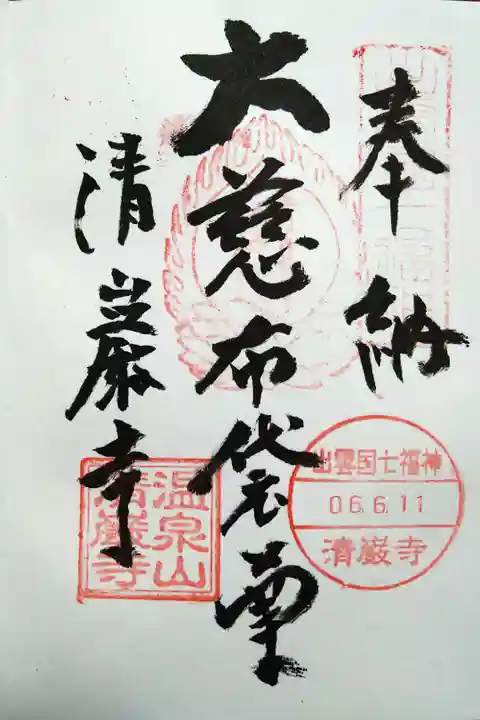 奉納
大慈布袋尊
清巌寺
出雲国七福神
06.6.11
清巌寺
温泉山
清巌寺